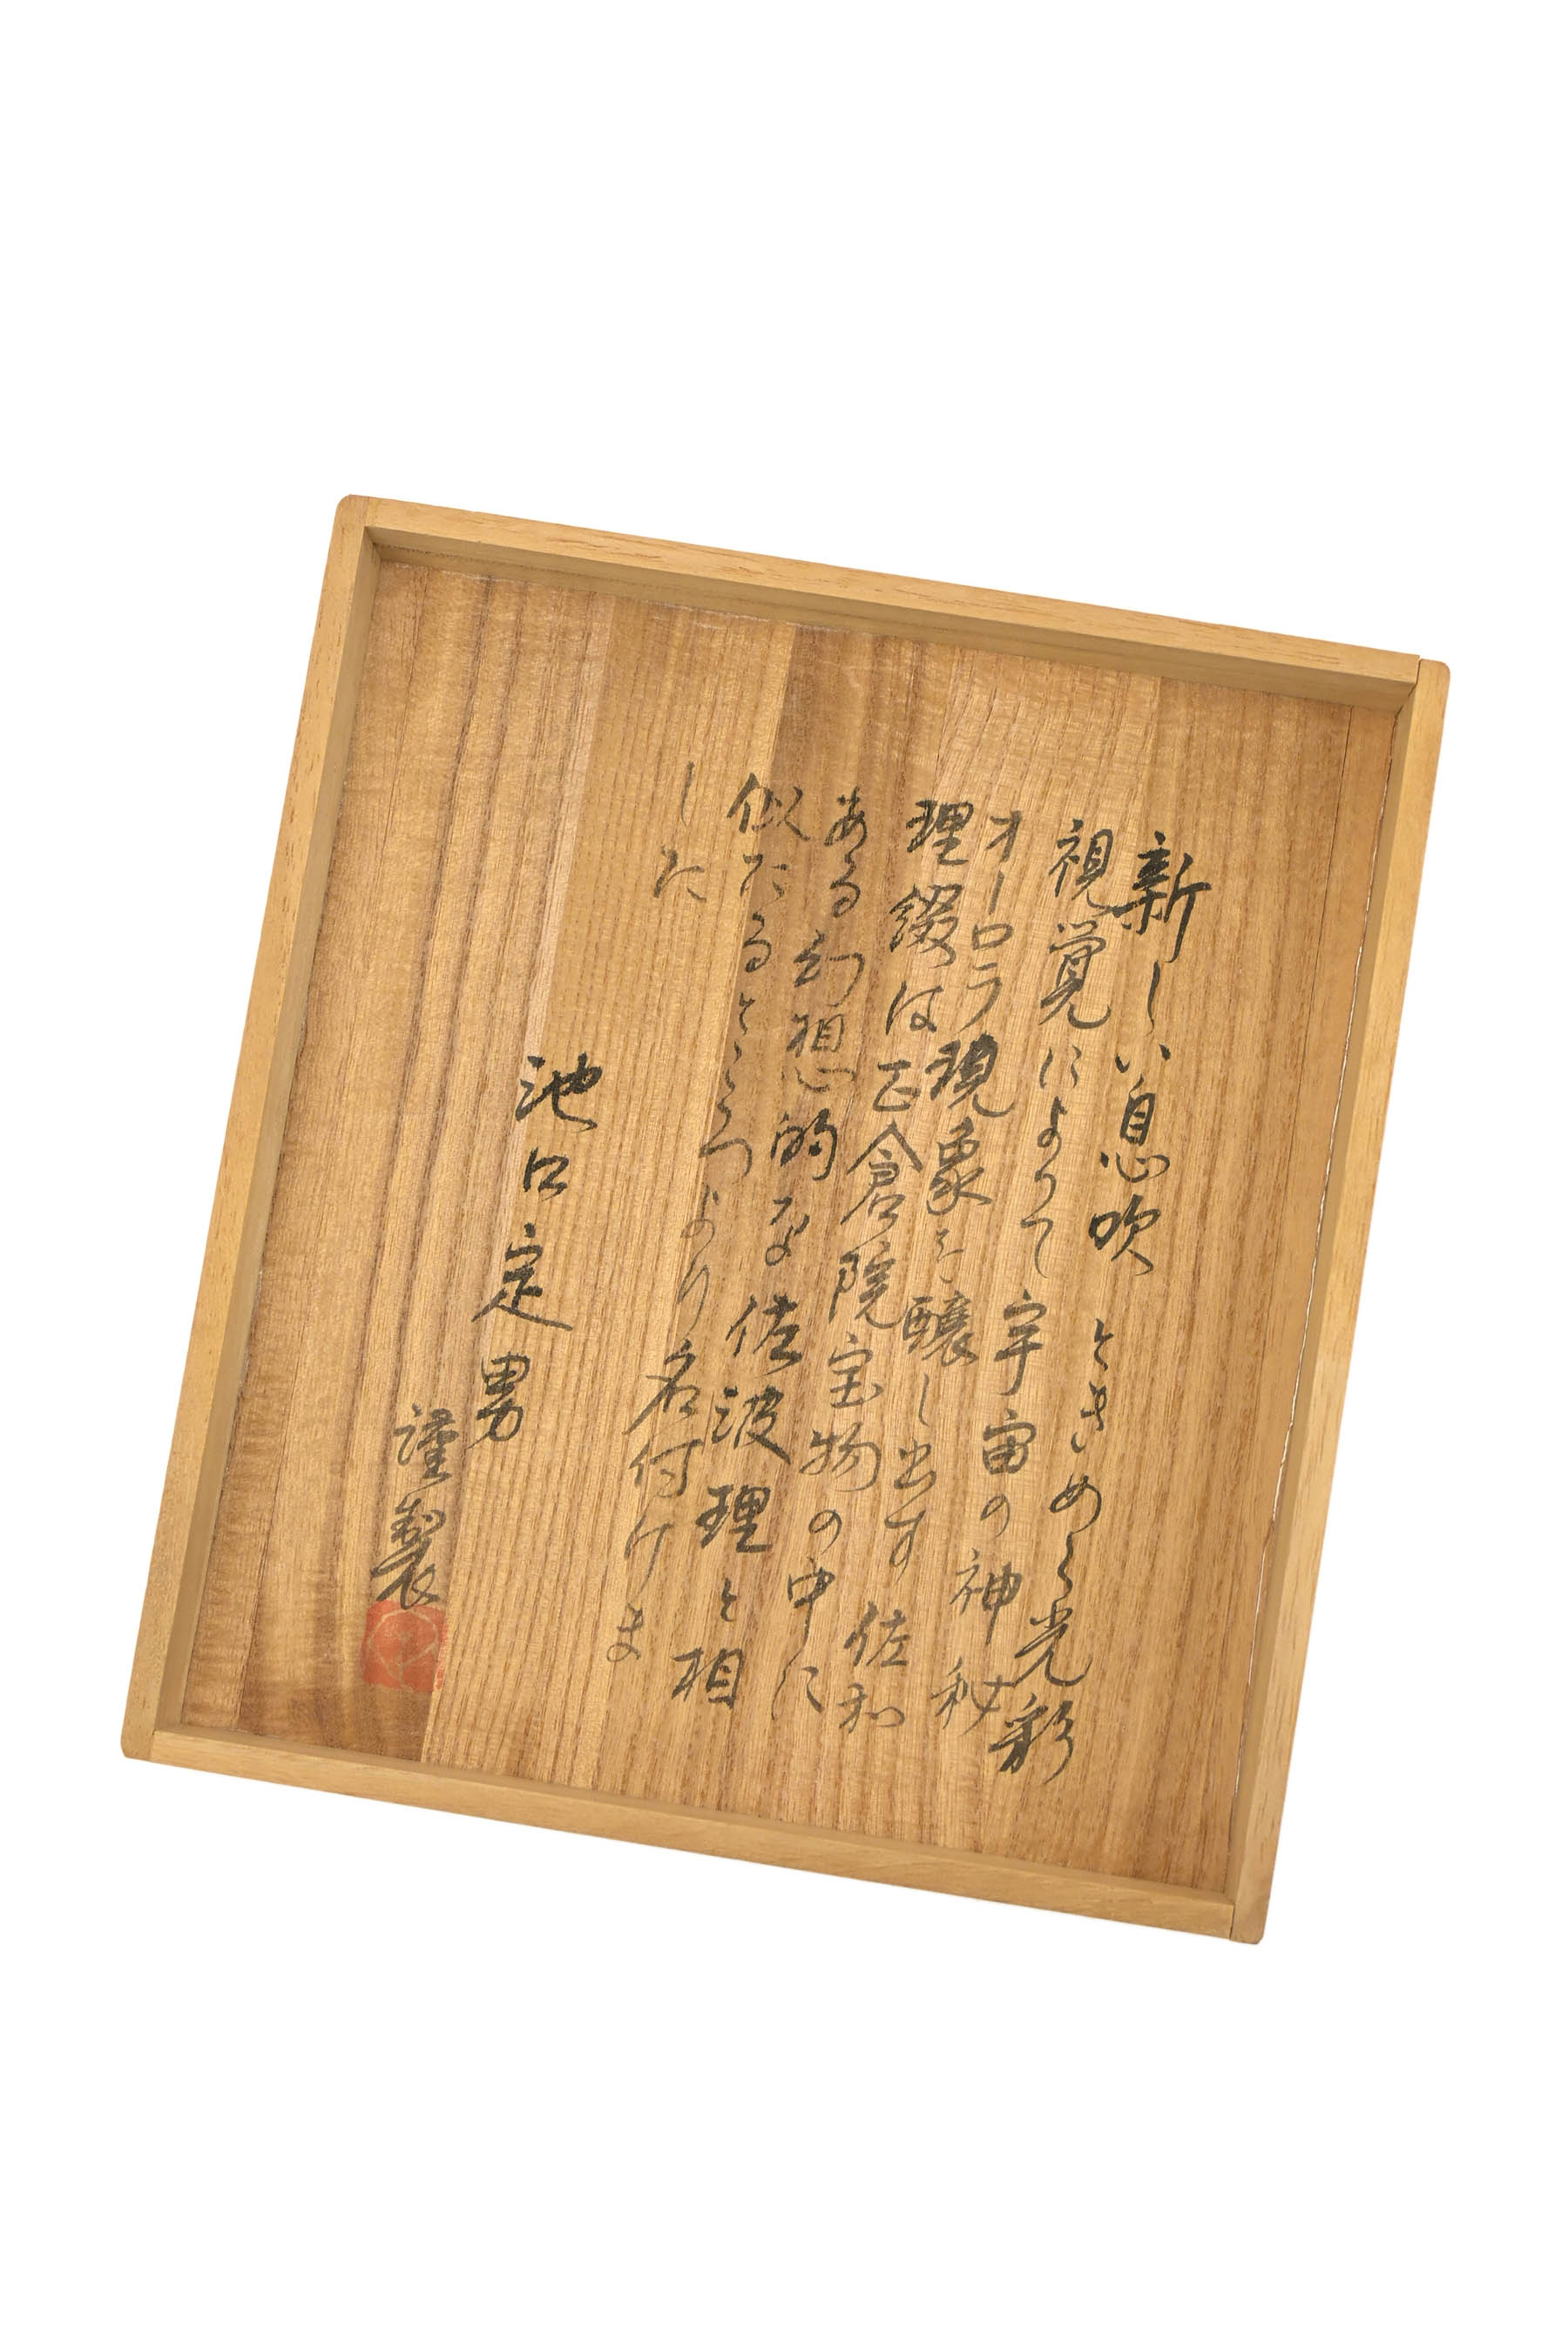 新しい息吹 ときめく光彩
視覚によって宇宙の神秘
オーロラ現象を醸し出す 佐和
理綴は正倉院宝物の中に
ある幻想的な佐波理と相
似たるところより名付けま
した
池口定男
謹製